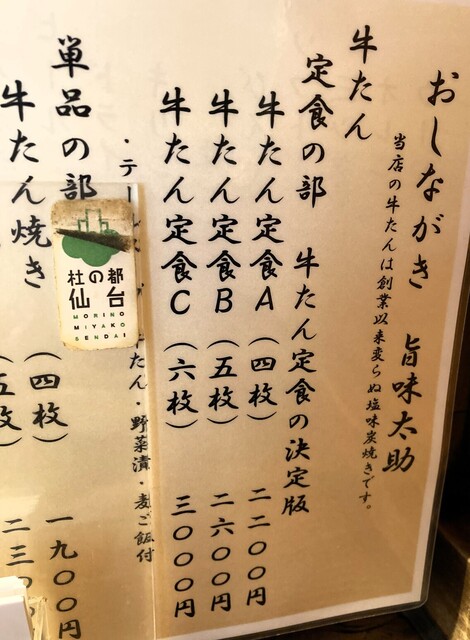 おしながき 旨味太助
当店の牛たんは創業以来変らぬ塩味炭焼きです。
牛たん
定食の部 牛たん定食の決定版
牛たん定食A(四枚) 二二〇〇円
牛たん定食B(五枚) 二六〇〇円
牛たん定食C(六枚) 三〇〇〇円
・テ
たん・野菜漬・麦ご飯付
単品の部
牛たん焼き(四枚) 一九〇〇円
(五枚) 二三〇
杜の都
仙台
MORINO
MIYAKO
SENDAI